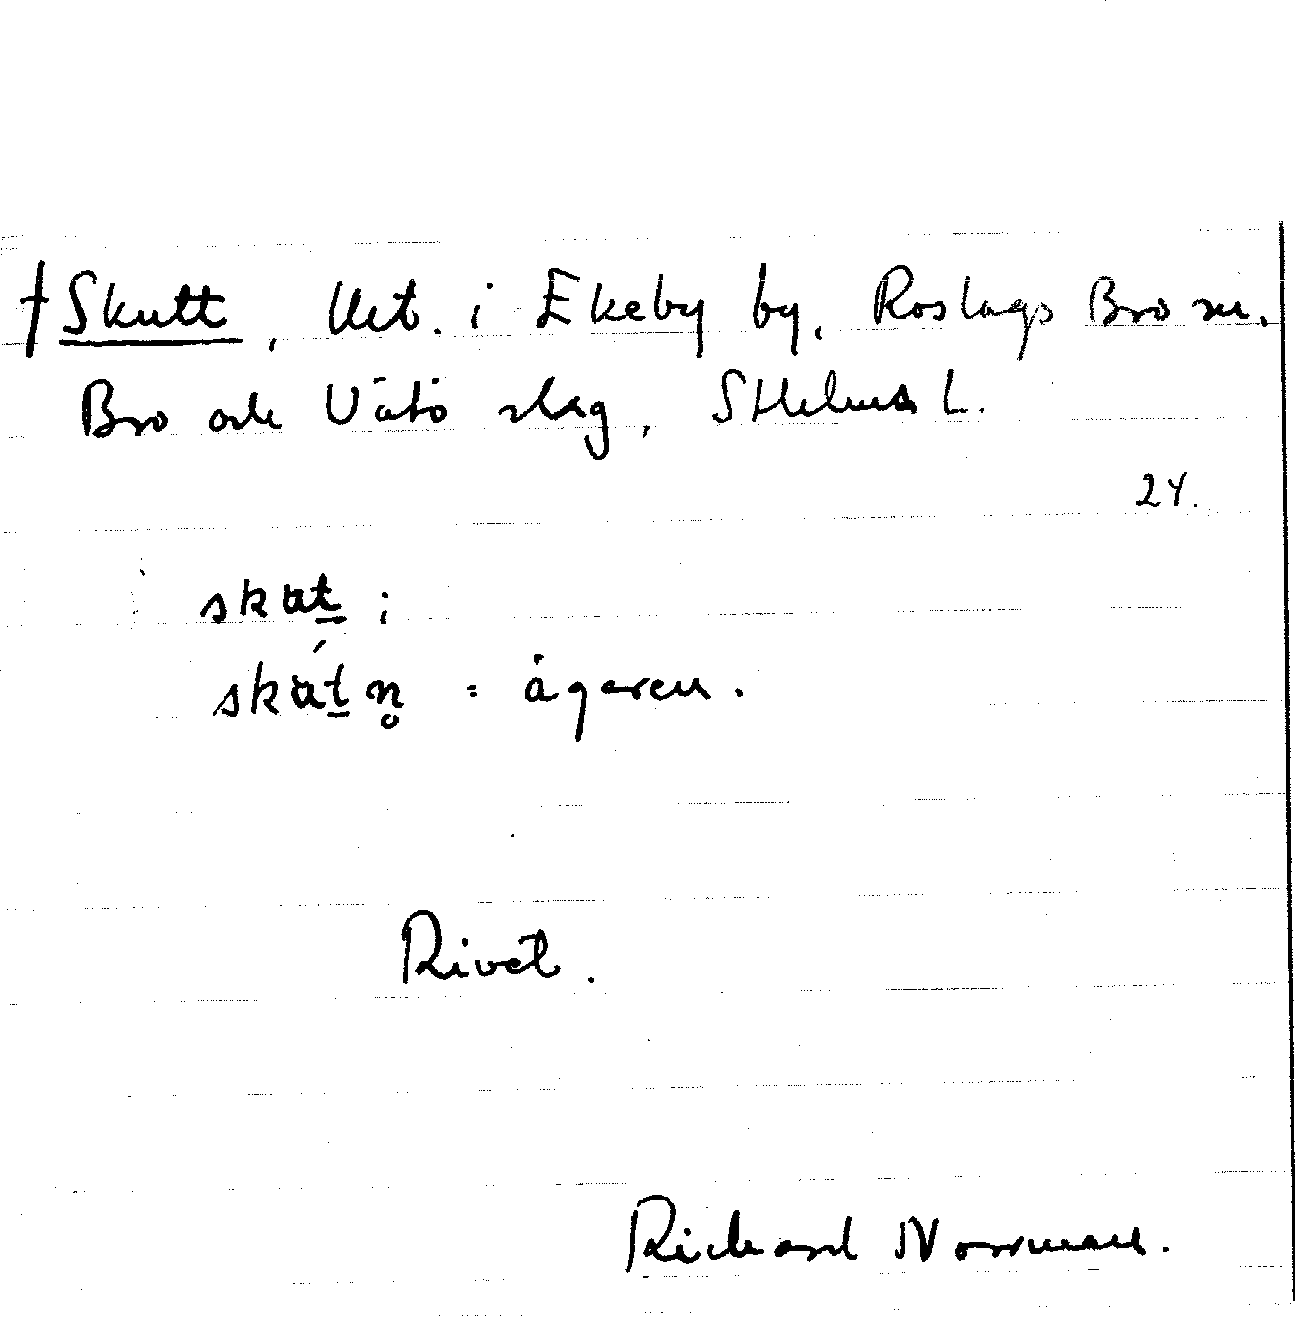 † Skutt, lht. i Ekeby by, Roslags Bro sn.
Bro och Vätö slag, Sthlms L.
24.
skat ;
skát n̥ = ägaren.
Rivet.
Richard Norrman.